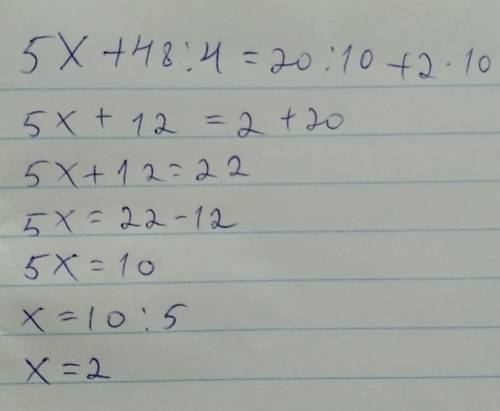 5x + 48 : 4 = 20 : 10 + 2 · 10
5x + 12 = 2 + 20
5x + 12 = 22
5x = 22 - 12
5x = 10
x = 10 : 5
x = 2